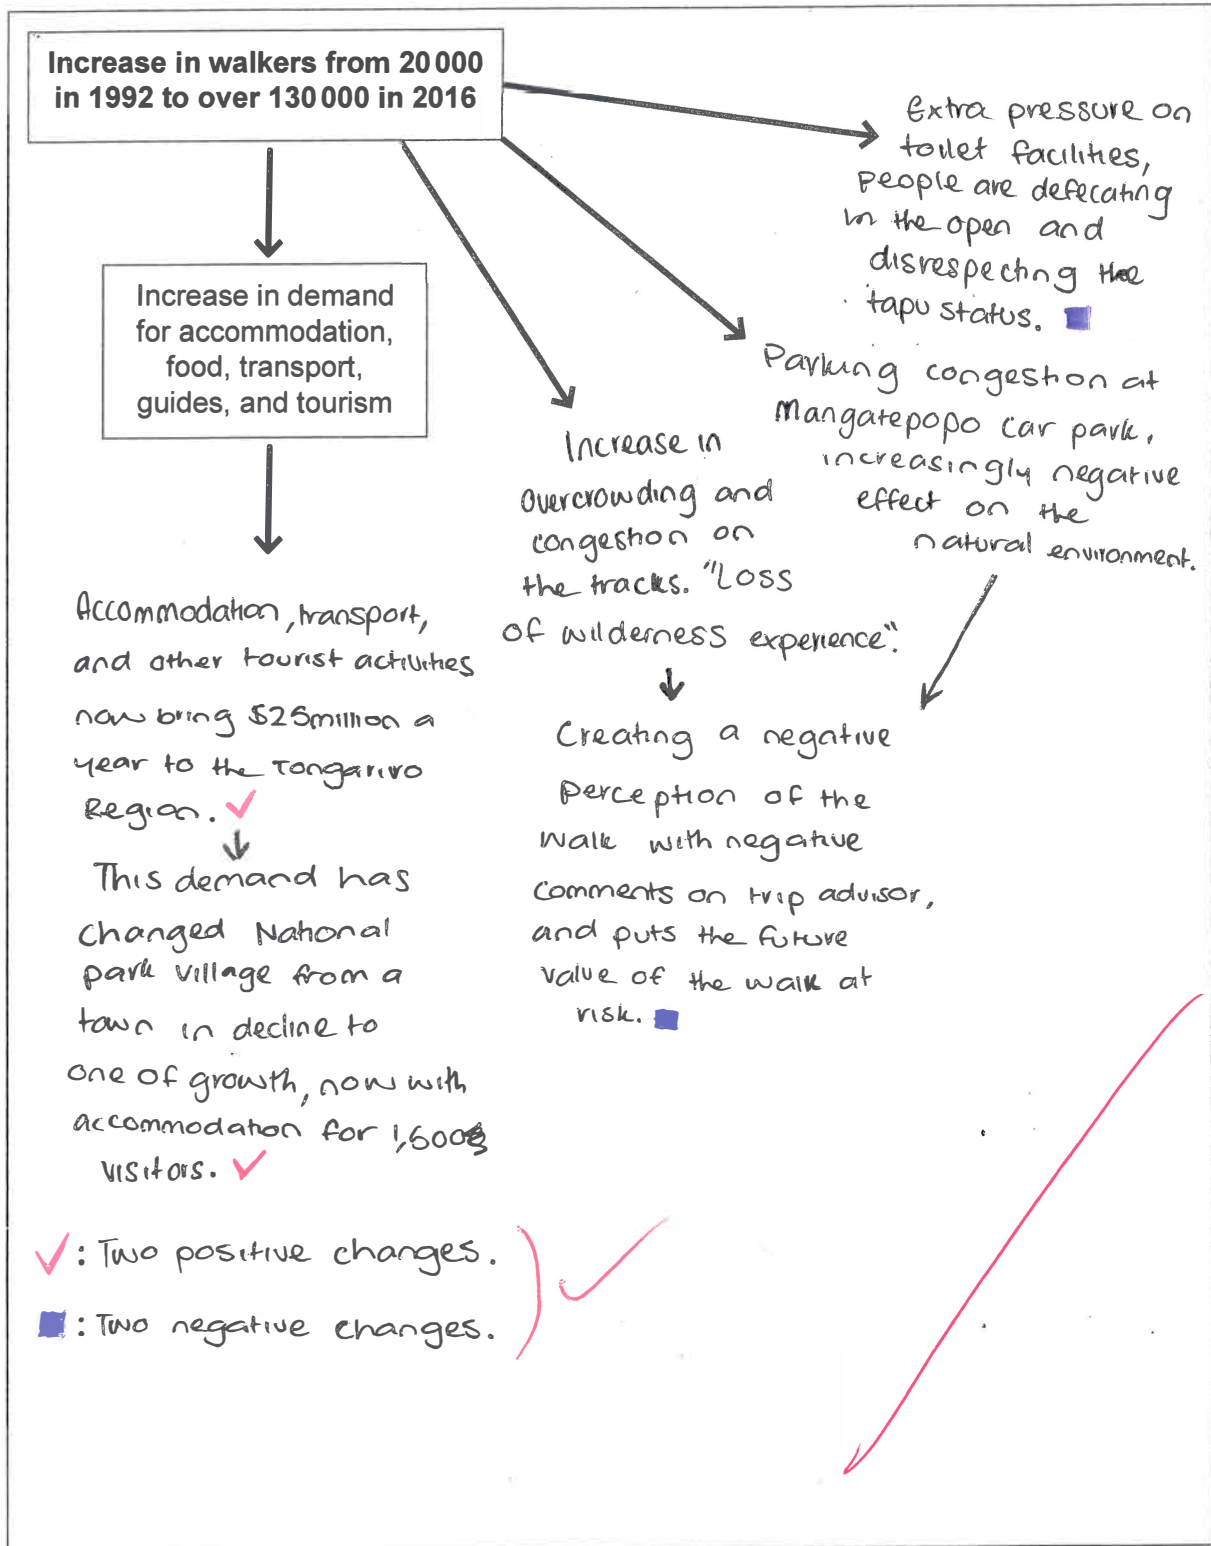 Increase in walkers from 20 000
in 1992 to over 130 000 in 2016
Increase in demand
for accommodation,
food, transport,
guides, and tourism
Accommodation, transport,
and other tourist activities
now bring $25million a
year to the Tongariro
Region.
This demand has
changed National
park village from a
town in decline to
one of growth, now with
accommodation for 1,500
visitors.
Increase in
overcrowding and
congestion on
the tracks. "Loss
of wilderness experience".
Creating a negative
perception of the
walk with negative
comments on trip advisor,
and puts the future
value of the walk at
risk.
Parking congestion at
Mangatepopo car park,
increasingly negative
effect on the
natural environment.
Extra pressure on
toilet facilities,
people are defecating
in the open and
disrespecting the
tapu status.
: Two positive changes.
: Two negative changes.